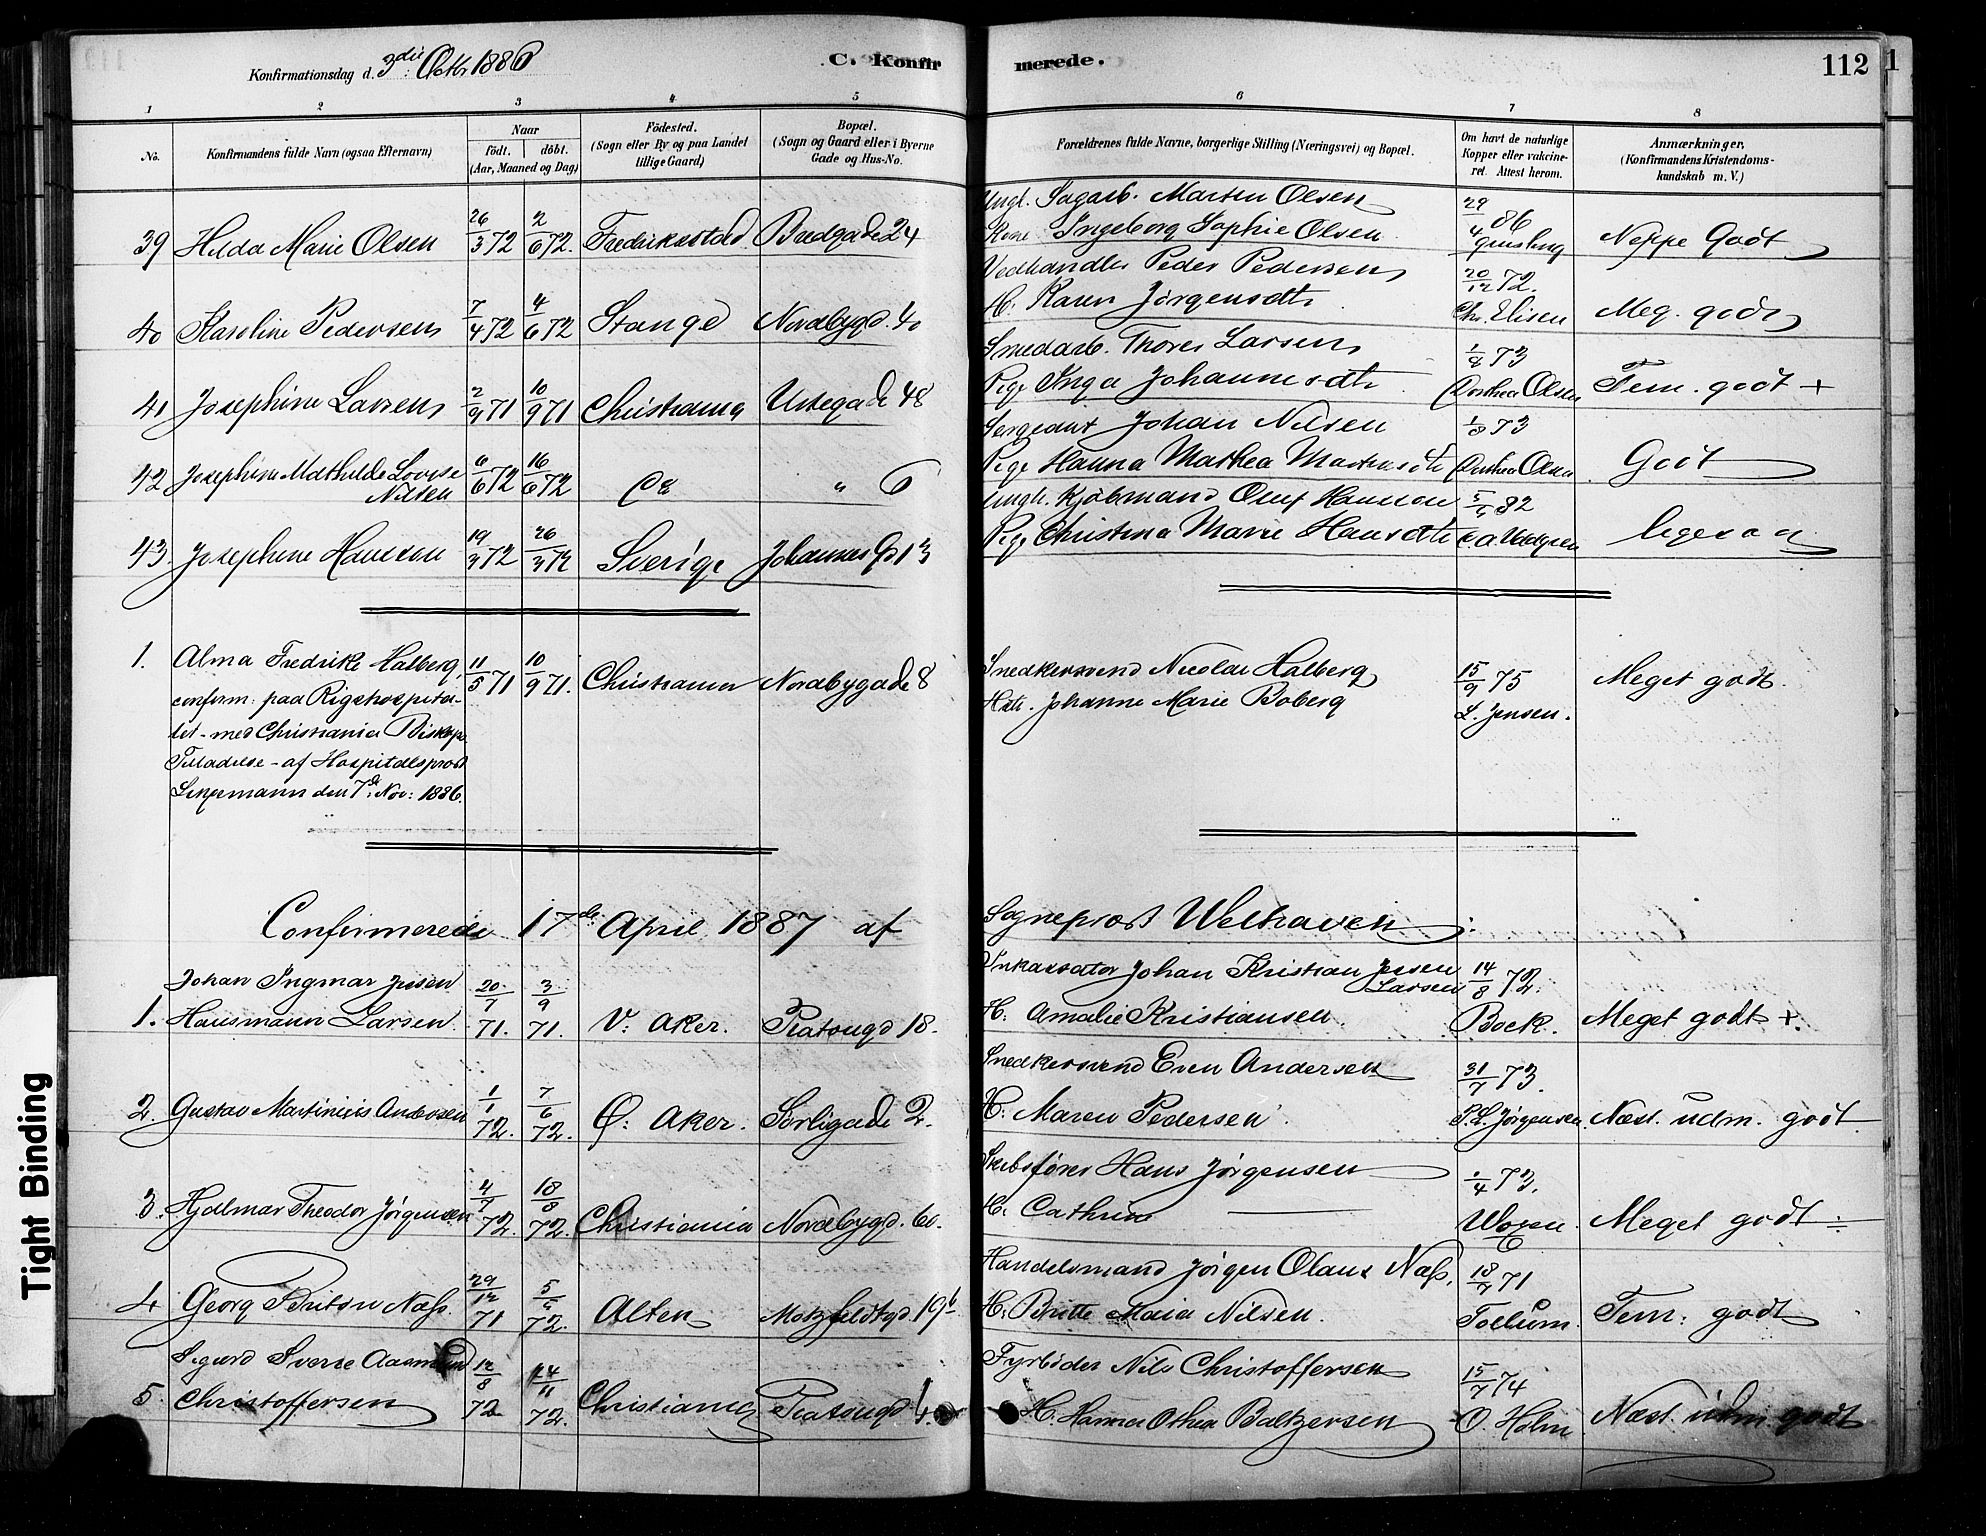 Konfirmationsdag d. 3die Octbr 1886
C. Konfirmerede.
112
1 2 3 4 5 6 7 8
No.
Konfirmandens fulde Navn (ogsaa Efternavn)
Naar
födt. döbt.
(Aar, Maaned og Dag)
Födested.
(Sogn eller By og paa Landet
tillige Gaard)
Bopæl.
(Sogn og Gaard eller i Byerne
Gade og Hus-No.
Forældrenes fulde Navne, borgerlige Stilling (Næringsvei) og Bopæl.
Om havt de naturlige
Kopper eller vakcine-
ret. Attest herom.
Anmærkninger.
(Konfirmandens Kristendoms-
kundskab m. V.)
Ungk. Sagarb. Marten Olsen 29/4 86
39 Hilda Marie Olsen 26/3 72 2/6 72. Fredrikstad Bredgade 24 Ingeborg Sophie Olsen Neppe Godt
Vedhandler Peder Pedersen 20/12 72.
40 Karoline Pedersen 7/4 72 4/6 72 Stange Nordbygd. 40 H. Karen Jörgensdtr Chr. Elisen Meg. godt
Smedarb. Thorer Larsen 73
41 Josephine Larsen 2/9 71 10/9 71 Christiania Urtegade 48 Pige Inga Johannesdtr Dorthea Olsen Tem. godt +
Sergeant Johan Nilsen 1/8 73
42 Josephine Mathilde Lovise
Nilsen 6/6 72 16/6 72 " 6 Pige Hanna Mathea Dorthea Olsen Godt
Ungk. Kjöbmand Oluf Hansen 82
43. Josephine Hansen 19/3 72 26/3 72 Sverige Johannes G. 13 Pige Christina Marie Hansdtr
1. Alma Fredrike Halberg, 11/5 71 10/9 71. Christiania Nordbygade 8 Snedkersvend Nicolai Halberg 15/9 75 Meget godt.
conform. paa Rigshospita- Hstr. Johanne Marie Boberg L. Jensen.
let - med Christiania Biskops
Tilladelse - af Hospitalsprest
den 7de Nov: 1886.
Confirmerede 17de April 1887 af Sognepræst Welhaven.
Johan Ingmar Jessen 20/7 3/9 Inkassator Johan Kristian Jessen
Larsen 14/8 72.
1. Hausmann Larsen. 71. 71. V: Aker. Platougd 18. H: Amalie Kristiansen. Bock. Meget godt +.
Snedkersvend Even Andersen 31/7 73.
2. Gustav Martinius Andersen 1/1 72. 7/6 72. Ø: Aker. Sörligade 2. H: Maren Pedersen P. L. Jörgensen. Næst. udm. godt
Skibsfører Hans Jørgensen 1/4 73.
3. Hjalmar Theodor Jørgensen 4/7 72. 18/8 72. Christiania Nordbygd. 60. H. Cathrine Woxen. Meget godt ÷
Handelsmand Jörgen Olaus Næss. 18/7 71
4 Georg Britön Næss. 29/12 71 5/5 72. Alten Motzfeldtgd. 19b H: Britte Maia Nilsen. Tollum. Tem: godt
Sigurd Sverre Aasmund 12/8 14/11 Fyrböder Nils Christoffersen 15/7 74
5. Christoffersen 72 72. Christiania Platougd H. Hanna Othea Baltzersen O. Holm Næst. udm. godt
Tight Binding